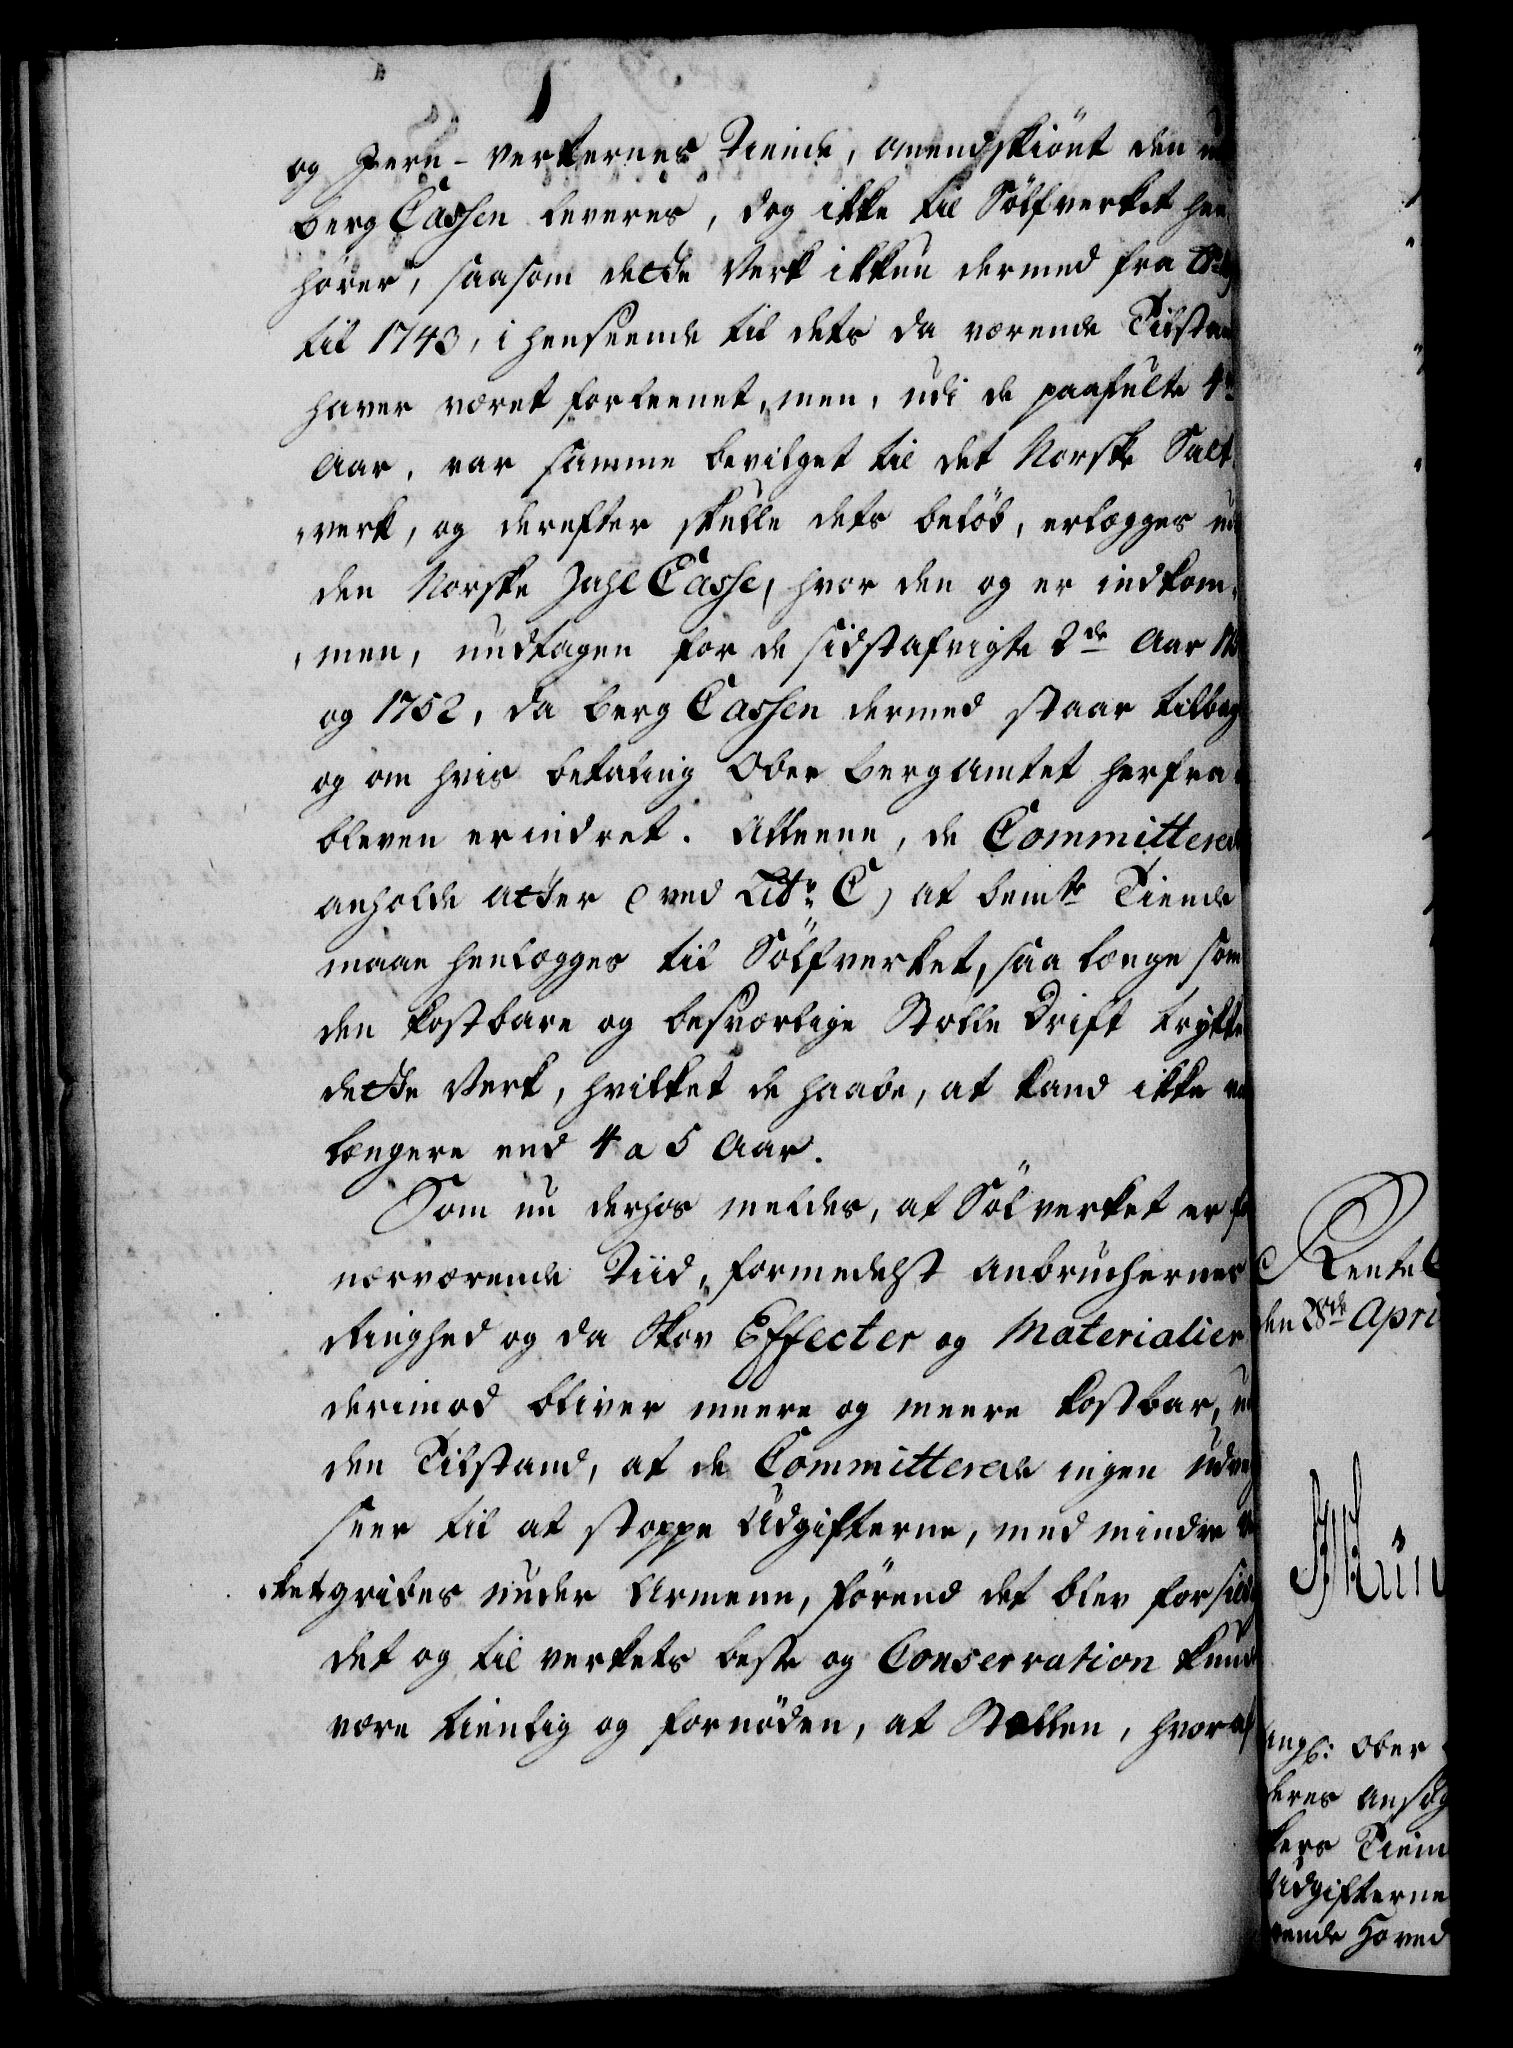 og Jern-verkernes Tiende, omendskiönt den
berg Cassen leveres, dog ikke til Sölfverket hen
hörer, saasom dette Verk ikkun dermed fra
til 1743, i henseende til dets da værende Tilstan
haver været forleenet, men, udi de paafulte 4re
Aar, var samme bevilget til det Norske Salt
verk, og derefter skulle dets belöb, erlægges ud
den Norske Zahl Casse, hvor den og er indkom-
men, undtagen for de sidstafvigte 2de Aar
og 1752, da berg Cassen dermed staar tilbag
og om hvis betaling Ober bergamtet herfra
bleven erindret. Alleene, de Committered
anholde atter (ved Litr: C) at bemte Tiende
maae henlægges til Sölfverket, saa længe som
den kostbare og besværlige Stolle Drift trykke
dette Verk, hvilket de haabe, at kand ikke
længere end 4 a 5 Aar.
Som nu derhos meldes, at Sölverket er
nærværende Tiid, formedelst Anbruchernes
Ringhed og da Skov Effecter og Materialier
derimod bliver meere og meere kostbar,
den Tilstand, at de Committerede ingen udveg
seer til at stoppe Udgifterne, med mindre
ket gribes under Armene, förend det blev for silde
det og til verkets beste og Conservation kund
være tienlig og fornöden, at Stollen, hvoraf
Rente
den 28de Apri
angl: Ober
deres ansøg
kers Tiem
Udgifterne
ende Hoved